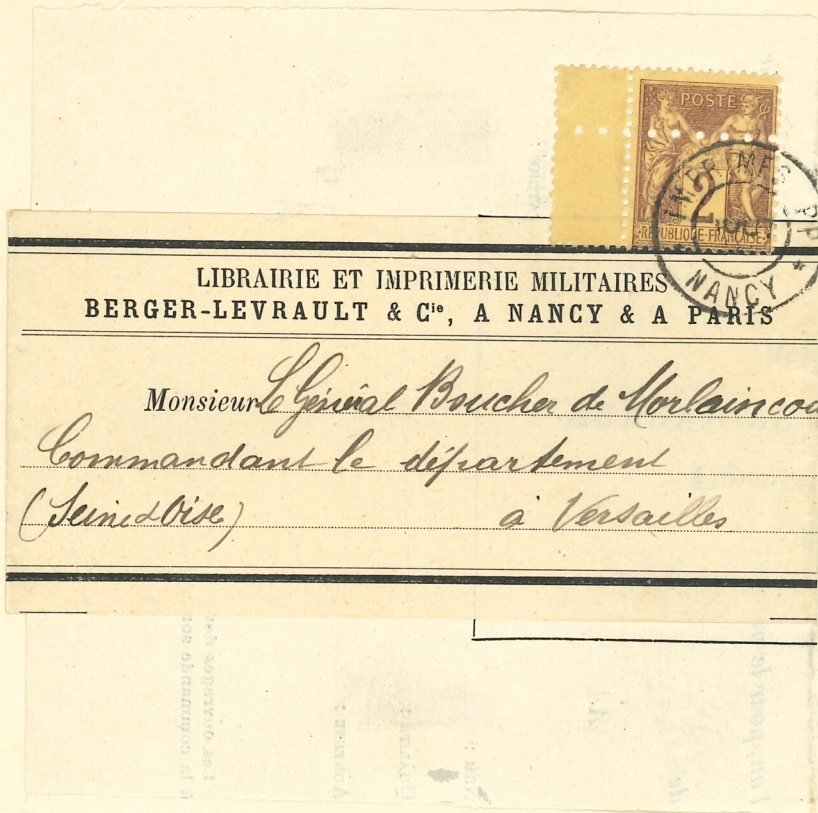 POSTE
2
REPUBLIQUE FRANÇAISE
IMPRIMÉS PP
NANCY
LIBRAIRIE ET IMPRIMERIE MILITAIRES
BERGER-LEVRAULT & Cie, A NANCY & A PARIS
Monsieur Le Général Boucher de Morlaincou
Commandant le département
(Seine & Oise) à Versailles